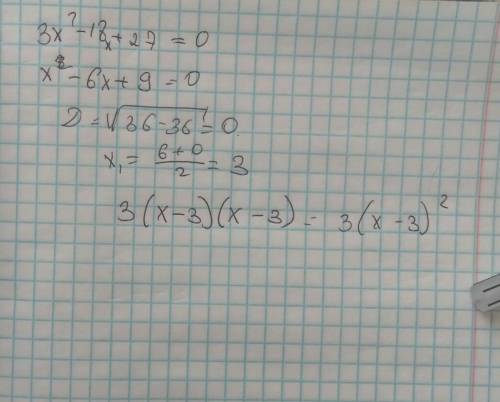 3x² - 18x + 27 = 0
x² - 6x + 9 = 0
D = √36 - 36 = 0
x₁ = (6 + 0)/2 = 3
3(x - 3)(x - 3) = 3(x - 3)²